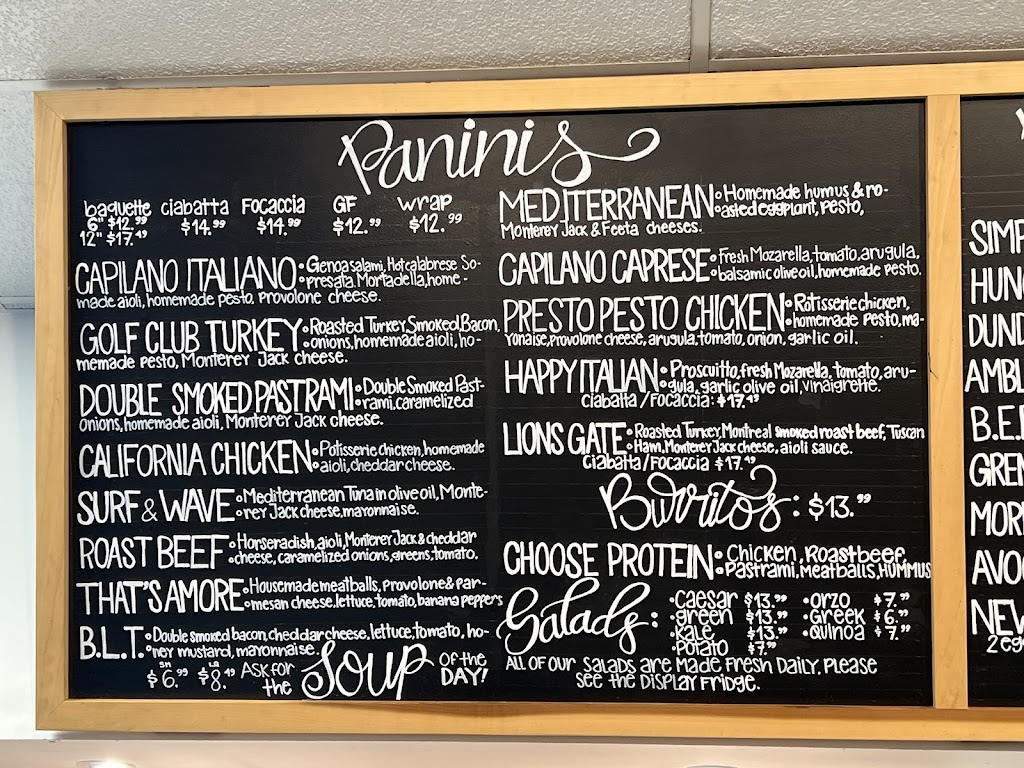 Paninis
baguette ciabatta Focaccia GF wrap
6" $12.99 $14.99 $14.99 $12.99 $12.99
12" $17.49
CAPILANO ITALIANO Genoa salami, Hot calabrese So-
presata, Mortadella, home-
made aioli, homemade pesto, Provolone cheese.
GOLF CLUB TURKEY Roasted Turkey, Smoked Bacon,
onions, homemade aioli, ho-
memade pesto, Monterey Jack cheese.
DOUBLE SMOKED PASTRAMI Double Smoked Past-
rami, caramelized
onions, homemade aioli, Monterey Jack cheese.
CALIFORNIA CHICKEN Rotisserie chicken, homemade
aioli, cheddar cheese.
SURF & WAVE Mediterranean Tuna in olive oil, Monte-
rey Jack cheese, mayonnaise.
ROAST BEEF Horseradish, aioli, Monterey Jack & cheddar
cheese, caramelized onions, greens, tomato.
THAT'S AMORE Housemade meatballs, provolone & Par-
mesan cheese, lettuce, tomato, banana peppers
B.L.T. Double smoked bacon, cheddar cheese, lettuce, tomato, ho-
ney mustard, mayonnaise.
SM $6.99 LG $8.49 ASK for the Soup OF the DAY!
MEDITERRANEAN Homemade humus & ro-
asted eggplant, pesto,
Monterey Jack & Feeta cheeses.
CAPILANO CAPRESE Fresh Mozarella, tomato, arugula,
balsamic olive oil, homemade pesto.
PRESTO PESTO CHICKEN Rotisserie chicken,
homemade pesto, ma-
yonaise, provolone cheese, arugula, tomato, onion, garlic oil.
HAPPY ITALIAN Proscuitto, fresh Mozarella, tomato, aru-
gula, garlic olive oil, vinaigrette.
ciabatta / Focaccia: $17.49
LIONS GATE Roasted Turkey, Montreal smoked roast beef, Tuscan
Ham, Monterey Jack cheese, aioli sauce.
Ciabatta / Focaccia $17.49
Burritos: $13.99
CHOOSE PROTEIN Chicken, Roastbeef,
Pastrami, Meatballs, HUMMUS
Salads: Caesar $13.99 Orzo $7.99
green $13.99 Greek $6.99
Kale $13.99 Quinoa $7.99
Potato $7.99
ALL OF OUR SALADS ARE MADE FRESH DAILY. PLEASE
SEE the DISPLAY FRIDGE.
SIMP
HUN
DUND
AMBL
B.E.
GREN
MOR
AVO
NEW
2 eg